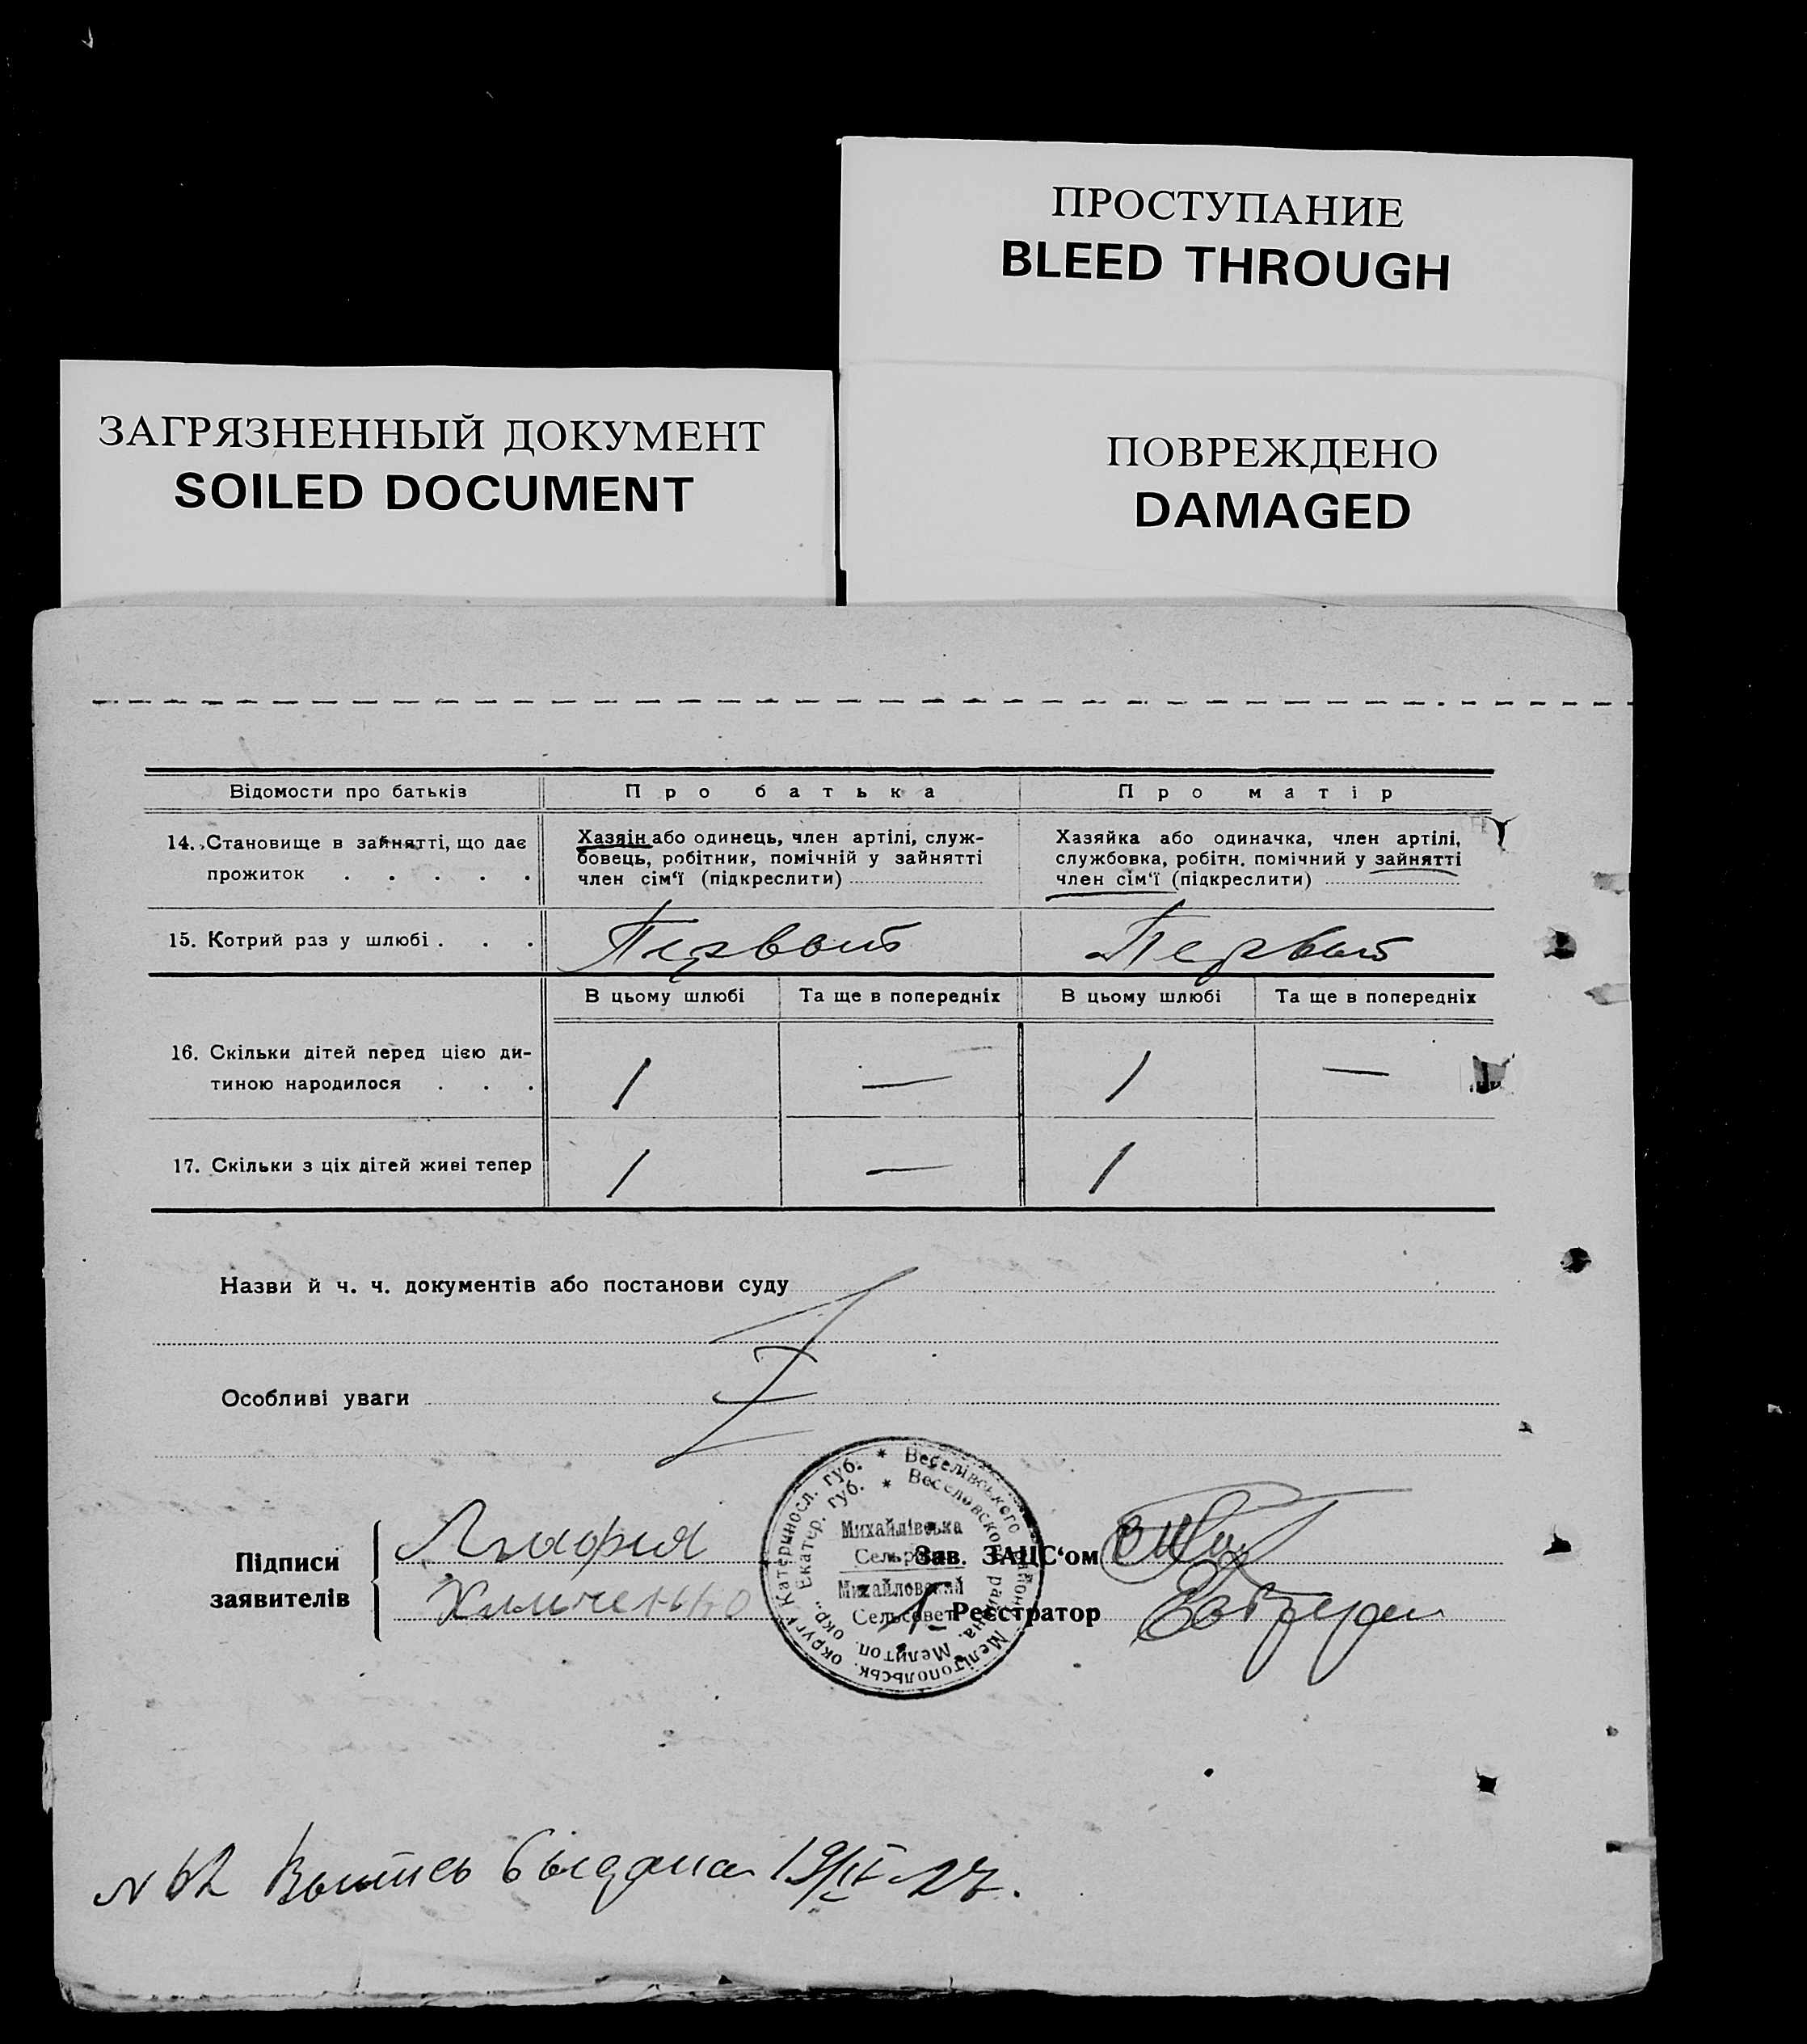 ПРОСТУПАНИЕ
BLEED THROUGH
ЗАГРЯЗНЕННЫЙ ДОКУМЕНТ
SOILED DOCUMENT
ПОВРЕЖДЕНО
DAMAGED
Відомости про батьків
Про батька
Про матір
14. Становище в зайнятті, що дає
прожиток . . . . .
Хазяін або одинець, член артілі, служ-
бовець, робітник, помічній у зайнятті
член сім‘ї (підкреслити)
Хазяйка або одиначка, член артілі,
службовка, робітн. помічний у зайнятті
член сім‘ї (підкреслити)
15. Котрий раз у шлюбі . . .
Первый
Первый
В цьому шлюбі
Та ще в попередніх
В цьому шлюбі
Та ще в попередніх
16. Скільки дітей перед цією ди-
тиною народилося . . .
1 — 1 —
17. Скільки з ціх дітей живі тепер
1 — 1
Назви й ч. ч. документів або постанови суду
Особливі уваги
Підписи
заявителів
Химченко
Зав. ЗАЦС‘ом
Реєстратор
* Веселівського району Мелітопольськ. округи Катериносл. губ.
* Веселовского района. Мелитоп. окр. Екатер. губ.
Михайлівська
Сельрада
Михайловский
Сельсовет
выдана 19/IV-27.